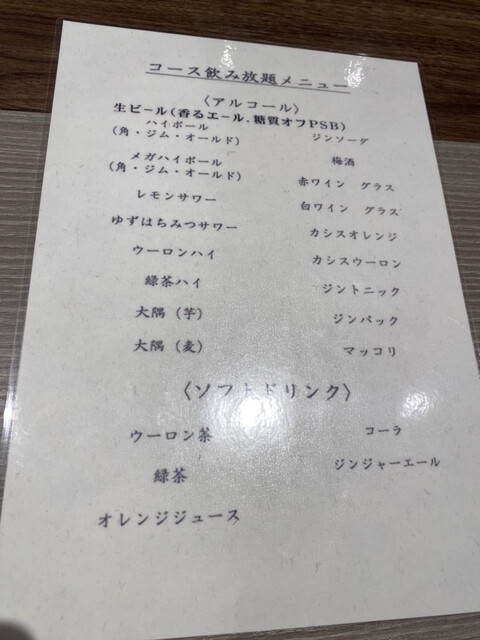 コース飲み放題メニュー
〈アルコール〉
生ビール(香るエール、糖質オフPSB)
ハイボール
(角・ジム・オールド)
ジンソーダ
メガハイボール
(角・ジム・オールド)
梅酒
レモンサワー
赤ワイン グラス
ゆずはちみつサワー
白ワイン グラス
ウーロンハイ
カシスオレンジ
緑茶ハイ
カシスウーロン
大隅(芋)
ジントニック
大隅(麦)
ジンバック
マッコリ
〈ソフトドリンク〉
ウーロン茶
コーラ
緑茶
ジンジャーエール
オレンジジュース